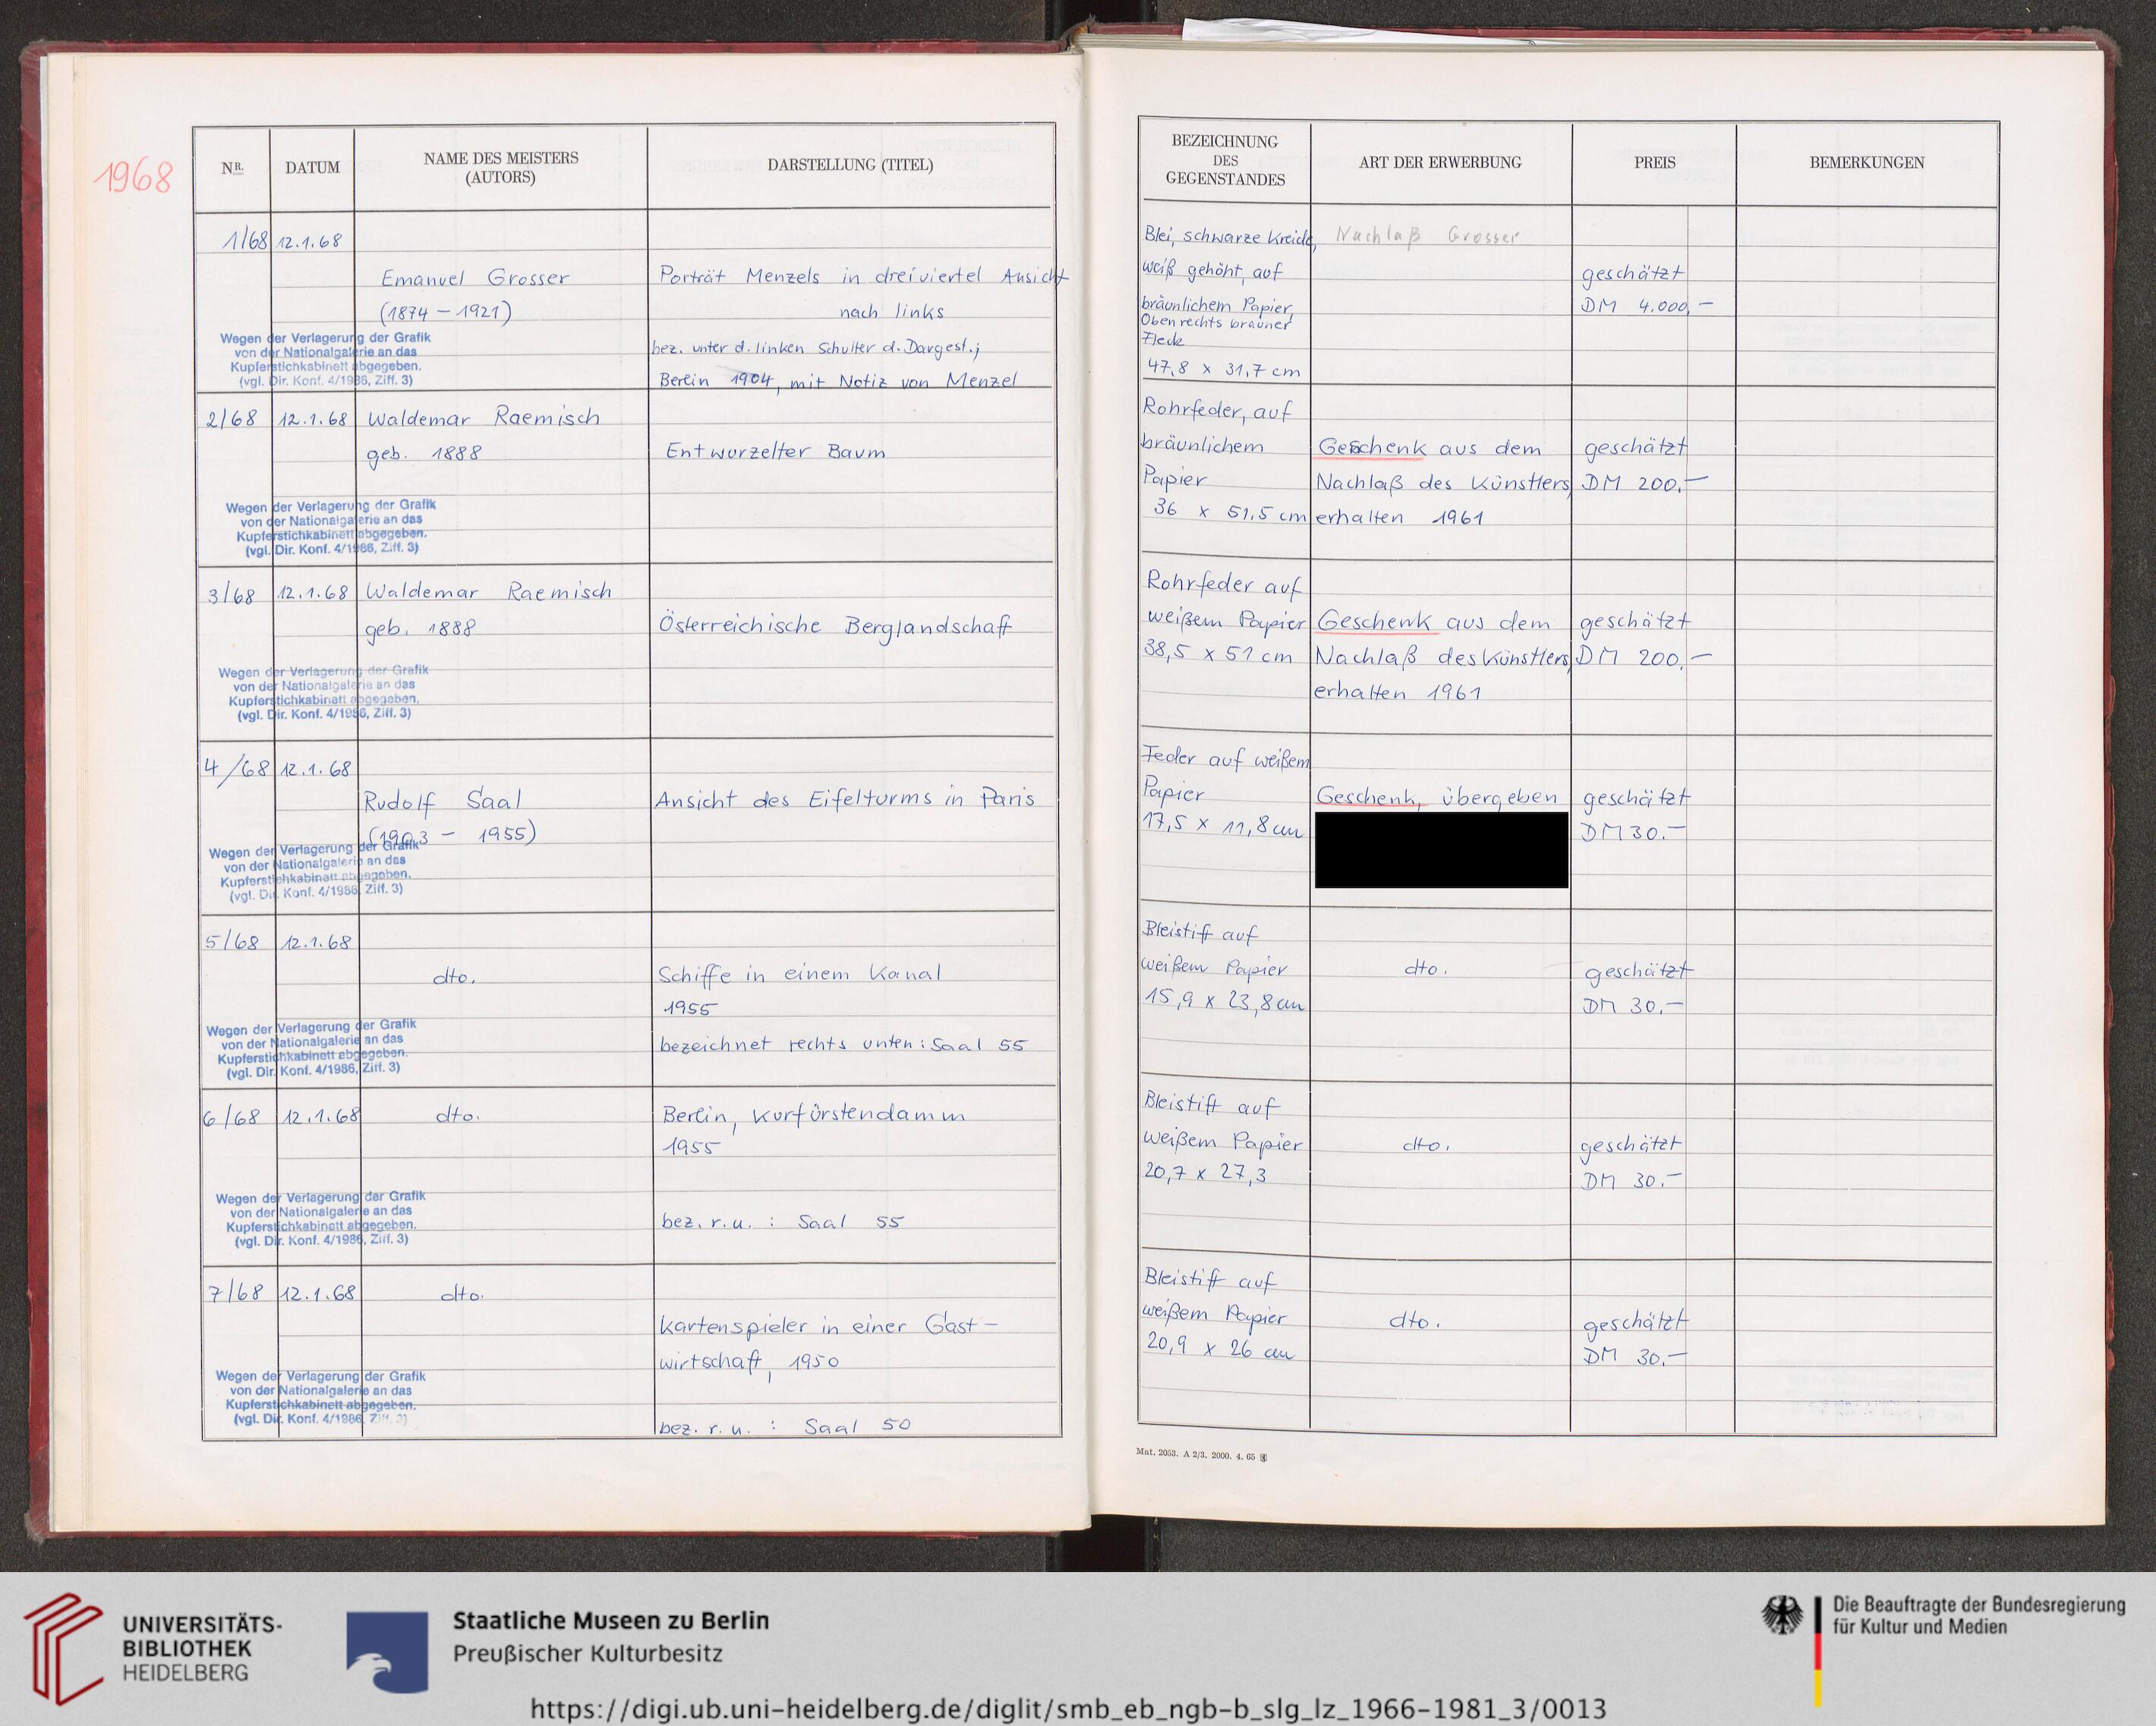 1968
NR.
DATUM
NAME DES MEISTERS
(AUTORS)
DARSTELLUNG (TITEL)
1/68 12.1.68
Emanuel Grosser
(1874 – 1921)
Porträt Menzels in dreiviertel Ansicht
nach links
bez. unter d. linken Schulter d. Dargest.;
Berlin 1904, mit Notiz von Menzel
Wegen der Verlagerung der Grafik
von der Nationalgalerie an das
Kupferstichkabinett abgegeben.
(vgl. Dir. Konf. 4/1986, Ziff. 3)
2/68 12.1.68 Waldemar Raemisch
geb. 1888
Entwurzelter Baum
Wegen der Verlagerung der Grafik
von der Nationalgalerie an das
Kupferstichkabinett abgegeben.
(vgl. Dir. Konf. 4/1986, Ziff. 3)
3/68 12.1.68 Waldemar Raemisch
geb. 1888
Österreichische Berglandschaft
Wegen der Verlagerung der Grafik
von der Nationalgalerie an das
Kupferstichkabinett abgegeben.
(vgl. Dir. Konf. 4/1986, Ziff. 3)
4/68 12.1.68
Rudolf Saal
(1903 – 1955)
Ansicht des Eifelturms in Paris
Wegen der Verlagerung der Grafik
von der Nationalgalerie an das
Kupferstichkabinett abgegeben.
(vgl. Dir. Konf. 4/1986, Ziff. 3)
5/68 12.1.68
dto.
Schiffe in einem Kanal
1955
bezeichnet rechts unten: Saal 55
Wegen der Verlagerung der Grafik
von der Nationalgalerie an das
Kupferstichkabinett abgegeben.
(vgl. Dir. Konf. 4/1986, Ziff. 3)
6/68 12.1.68 dto.
Berlin, Kurfürstendamm
1955
bez. r. u. : Saal 55
Wegen der Verlagerung der Grafik
von der Nationalgalerie an das
Kupferstichkabinett abgegeben.
(vgl. Dir. Konf. 4/1986, Ziff. 3)
7/68 12.1.68 dto.
Kartenspieler in einer Gast-
wirtschaft, 1950
bez. r. u. : Saal 50
Wegen der Verlagerung der Grafik
von der Nationalgalerie an das
Kupferstichkabinett abgegeben.
(vgl. Dir. Konf. 4/1986, Ziff. 3)
BEZEICHNUNG
DES
GEGENSTANDES
ART DER ERWERBUNG
PREIS
BEMERKUNGEN
Blei, schwarze Kreide,
weiß gehöht, auf
bräunlichem Papier,
Oben rechts brauner
Fleck
47,8 x 31,7 cm
Nachlaß Grosser
geschätzt
DM 4.000,–
Rohrfeder, auf
bräunlichem
Papier
36 x 51,5 cm
Geschenk aus dem
Nachlaß des Künstlers
erhalten 1961
geschätzt
DM 200.–
Rohrfeder auf
weißem Papier
38,5 x 51 cm
Geschenk aus dem
Nachlaß des Künstlers,
erhalten 1961
geschätzt
DM 200.–
Feder auf weißem
Papier
17,5 x 11,8 cm
Geschenk, übergeben
geschätzt
DM 30.–
Bleistift auf
weißem Papier
15,9 x 23,8 cm
dto.
geschätzt
DM 30.–
Bleistift auf
weißem Papier
20,7 x 27,3
dto.
geschätzt
DM 30.–
Bleistift auf
weißem Papier
20,9 x 26 cm
dto.
geschätzt
DM 30.–
Mat. 2053. A 2/3. 2000. 4. 65
UNIVERSITÄTS-
BIBLIOTHEK
HEIDELBERG
Staatliche Museen zu Berlin
Preußischer Kulturbesitz
Die Beauftragte der Bundesregierung
für Kultur und Medien
https://digi.ub.uni-heidelberg.de/diglit/smb_eb_ngb-b_slg_lz_1966-1981_3/0013